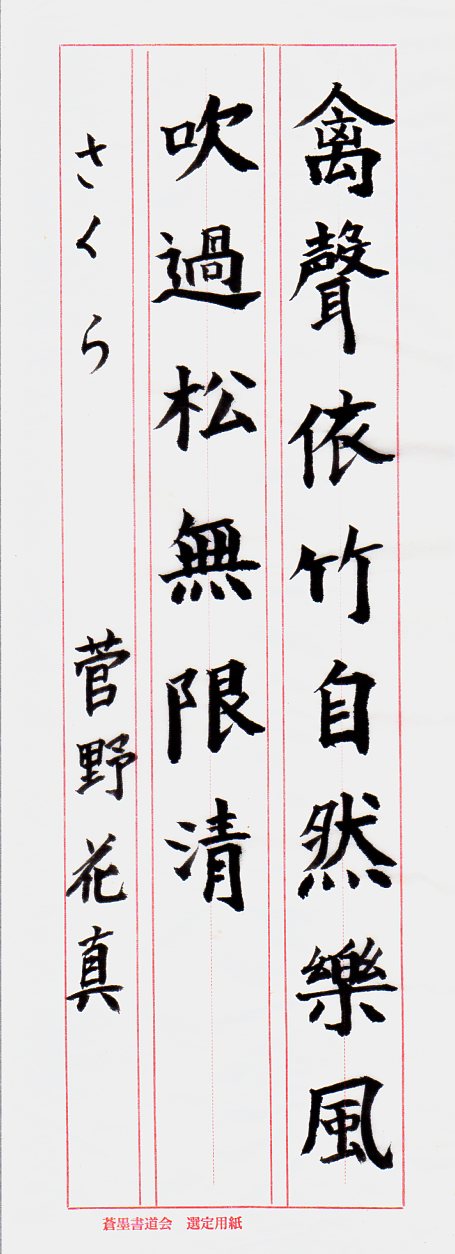 禽聲依竹自然樂風
吹過松無限清
さくら 菅野花真
蒼墨書道会 選定用紙